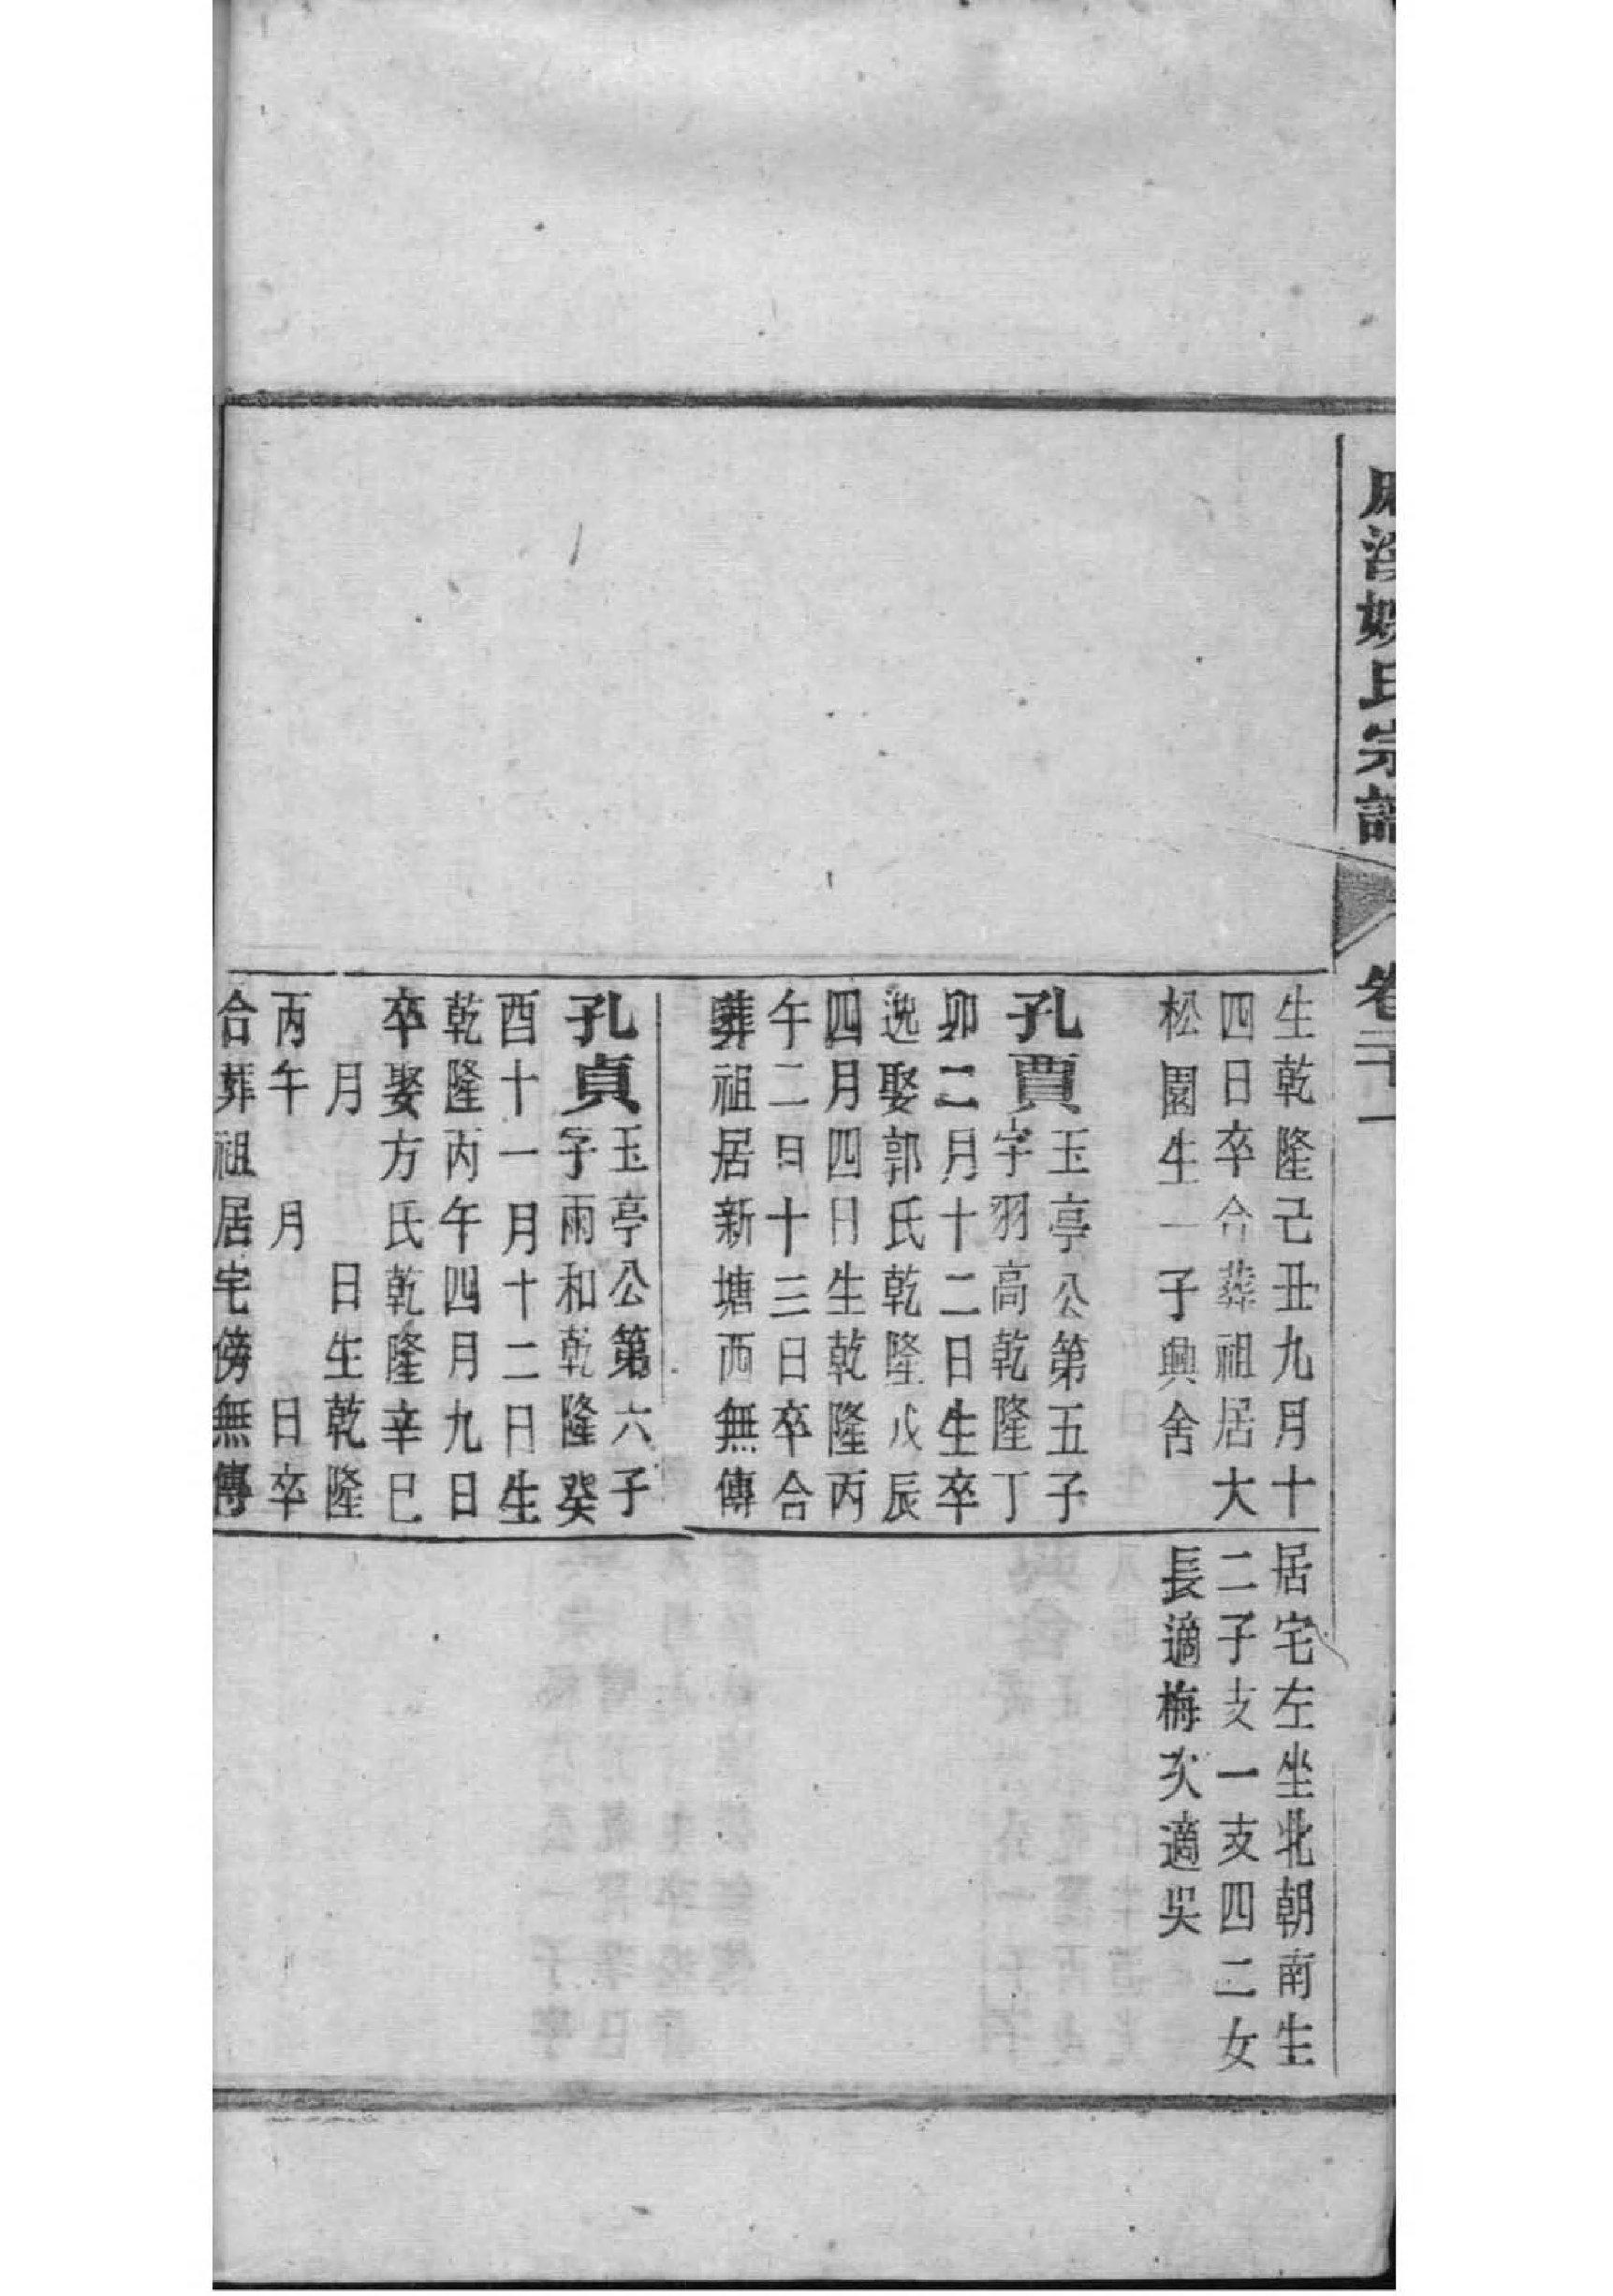 姚氏宗譜
卷二十一
生乾隆己丑九月十
四日卒合葬祖居大
松園生一子興舍
孔賈玉亭公第五子
字羽高乾隆丁
卯二月十二日生卒
逸娶郭氏乾隆戊辰
四月四日生乾隆丙
午二日十三日卒合
葬祖居新塘西無傳
孔貞玉亭公第六子
字雨和乾隆癸
酉十一月十二日生
乾隆丙午四月九日
卒娶方氏乾隆辛巳
月 日生乾隆
丙午 月 日卒
合葬祖居宅傍無傳
居宅左坐北朝南生
二子支一支四二女
長適梅次適吳